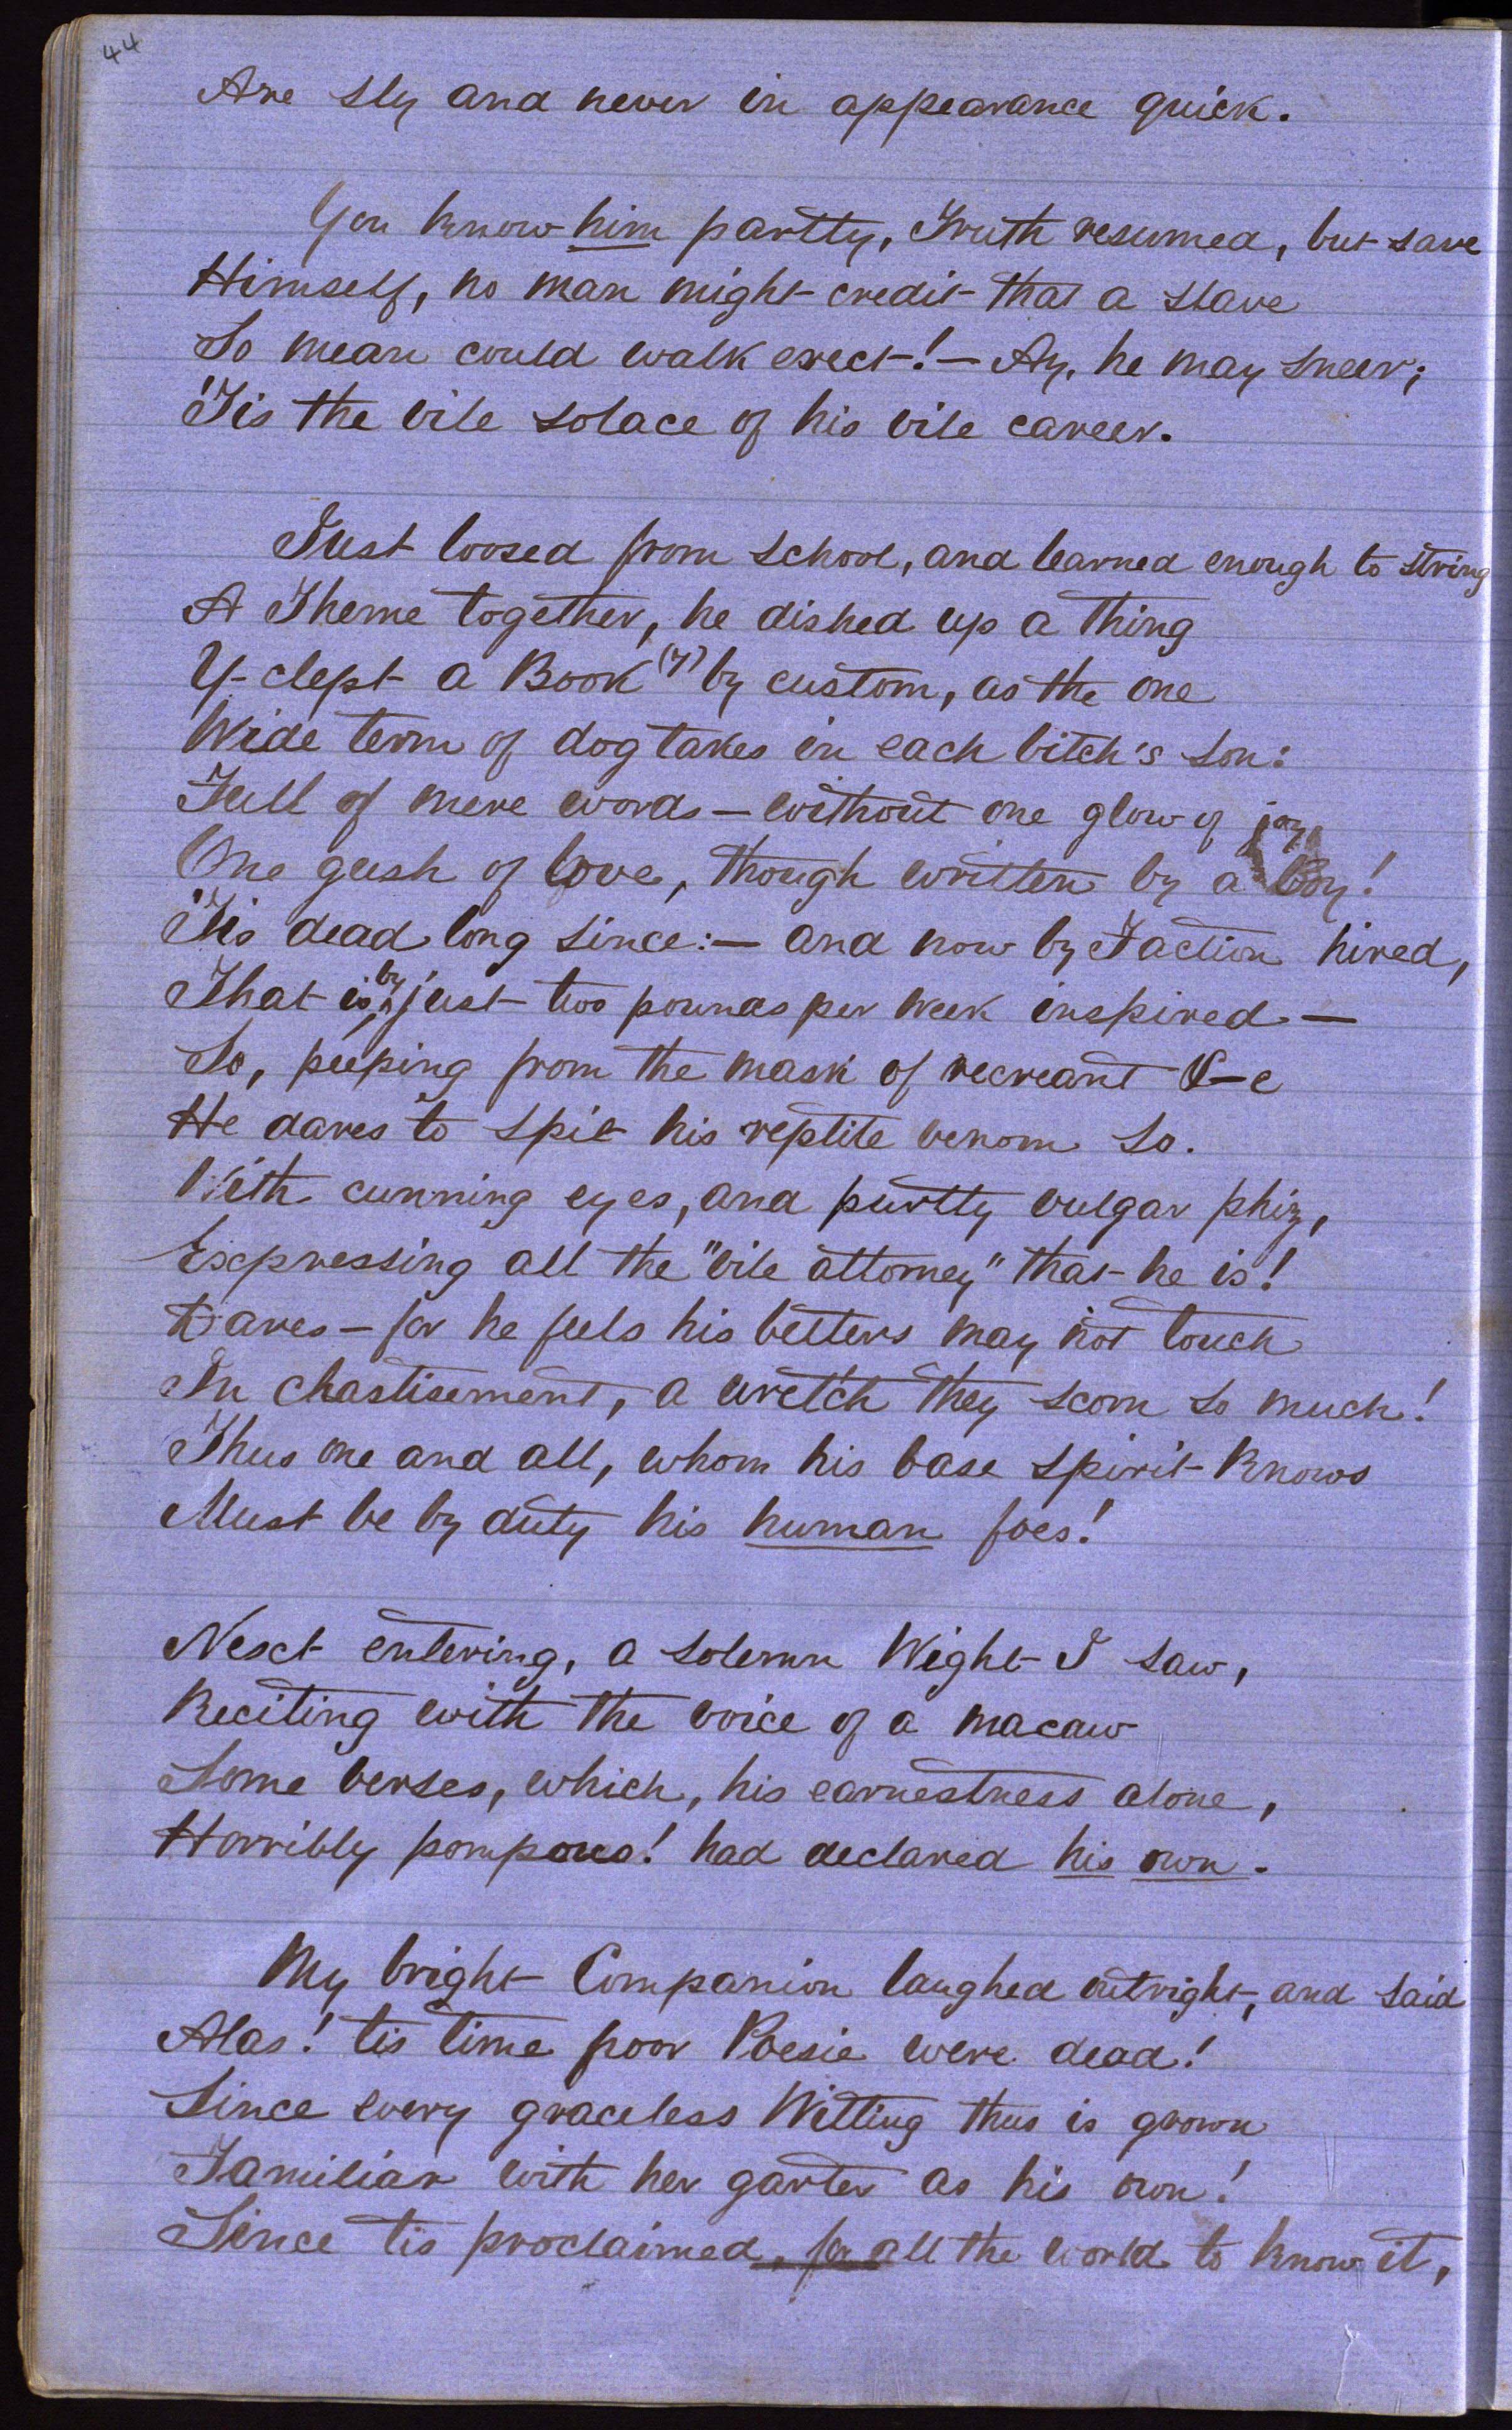 44
Are sly and never in appearance quick.
You know him partly, Truth resumed, but save
Himself, no man might credit that a slave
So mean could walk erect! — Ay, he may sneer;
'Tis the vile solace of his vile career.
Just loosed from school, and learned enough to string
A Theme together, he dished up a thing
Y-clept a Book (7) by custom, as the one
Wide term of dog takes in each bitch's son:
Full of mere words — without one glow of joy,
One gush of love, though written by a Boy!
'Tis dead long since: — and now by Faction hired,
That is, by just two pounds per week inspired —
So, peeping from the mask of recreant O—e
He dares to spit his reptile venom so.
With cunning eyes, and purtly vulgar phiz,
Expressing all the "vile attorney" that he is!
Dares — for he feels his betters may not touch
In chastisement, a wretch they scorn so much!
Thus one and all, whom his base spirit knows
Must be by duty his human foes!
Next entering, a solemn Wight I saw,
Reciting with the voice of a macaw
Some verses, which, his earnestness alone,
Horribly pompous! had declared his own.
My bright Companion laughed outright, and said
Alas! tis time poor Poesie were dead!
Since every graceless Witling thus is grown
Familiar with her garter as his own!
Since tis proclaimed, for all the world to know it,